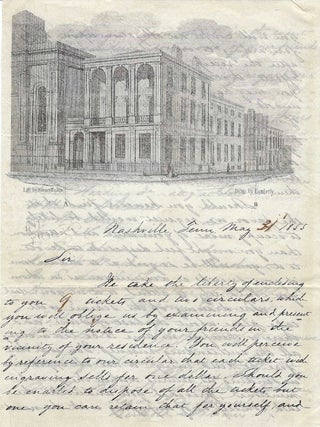 Nashville, Tenn May 31st 1855
Sir
We take the liberty of enclosing
to you 9 tickets and two circulars which
you will oblige us by examining and present
ing to the notice of your friends in the
vicinity of your residence. You will perceive
by reference to our circular that each ticket and
engraving sells for one dollar. Should you
be enabled to dispose of all the tickets but
one you can retain that for yourself and